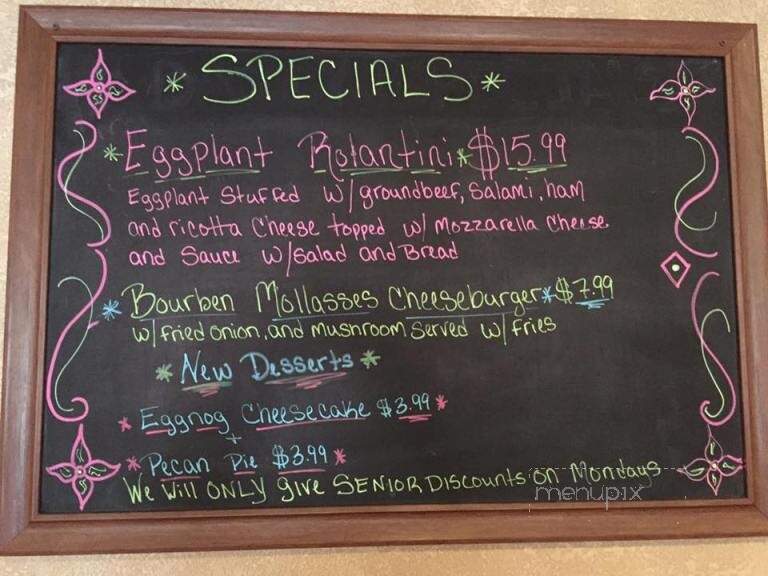 * SPECIALS *
* Eggplant Rotantini * $15.99
Eggplant Stuffed w/groundbeef, Salami, ham
and ricotta Cheese topped w/ Mozzarella Cheese
and Sauce w/Salad and Bread
* Bourben Mollasses Cheeseburger * $7.99
w/fried onion, and mushroom Served w/ fries
* New Desserts *
* Eggnog Cheesecake $3.99 *
+
* Pecan Pie $3.99 *
We Will ONLY give SENIOR Discounts on Mondays
menupix